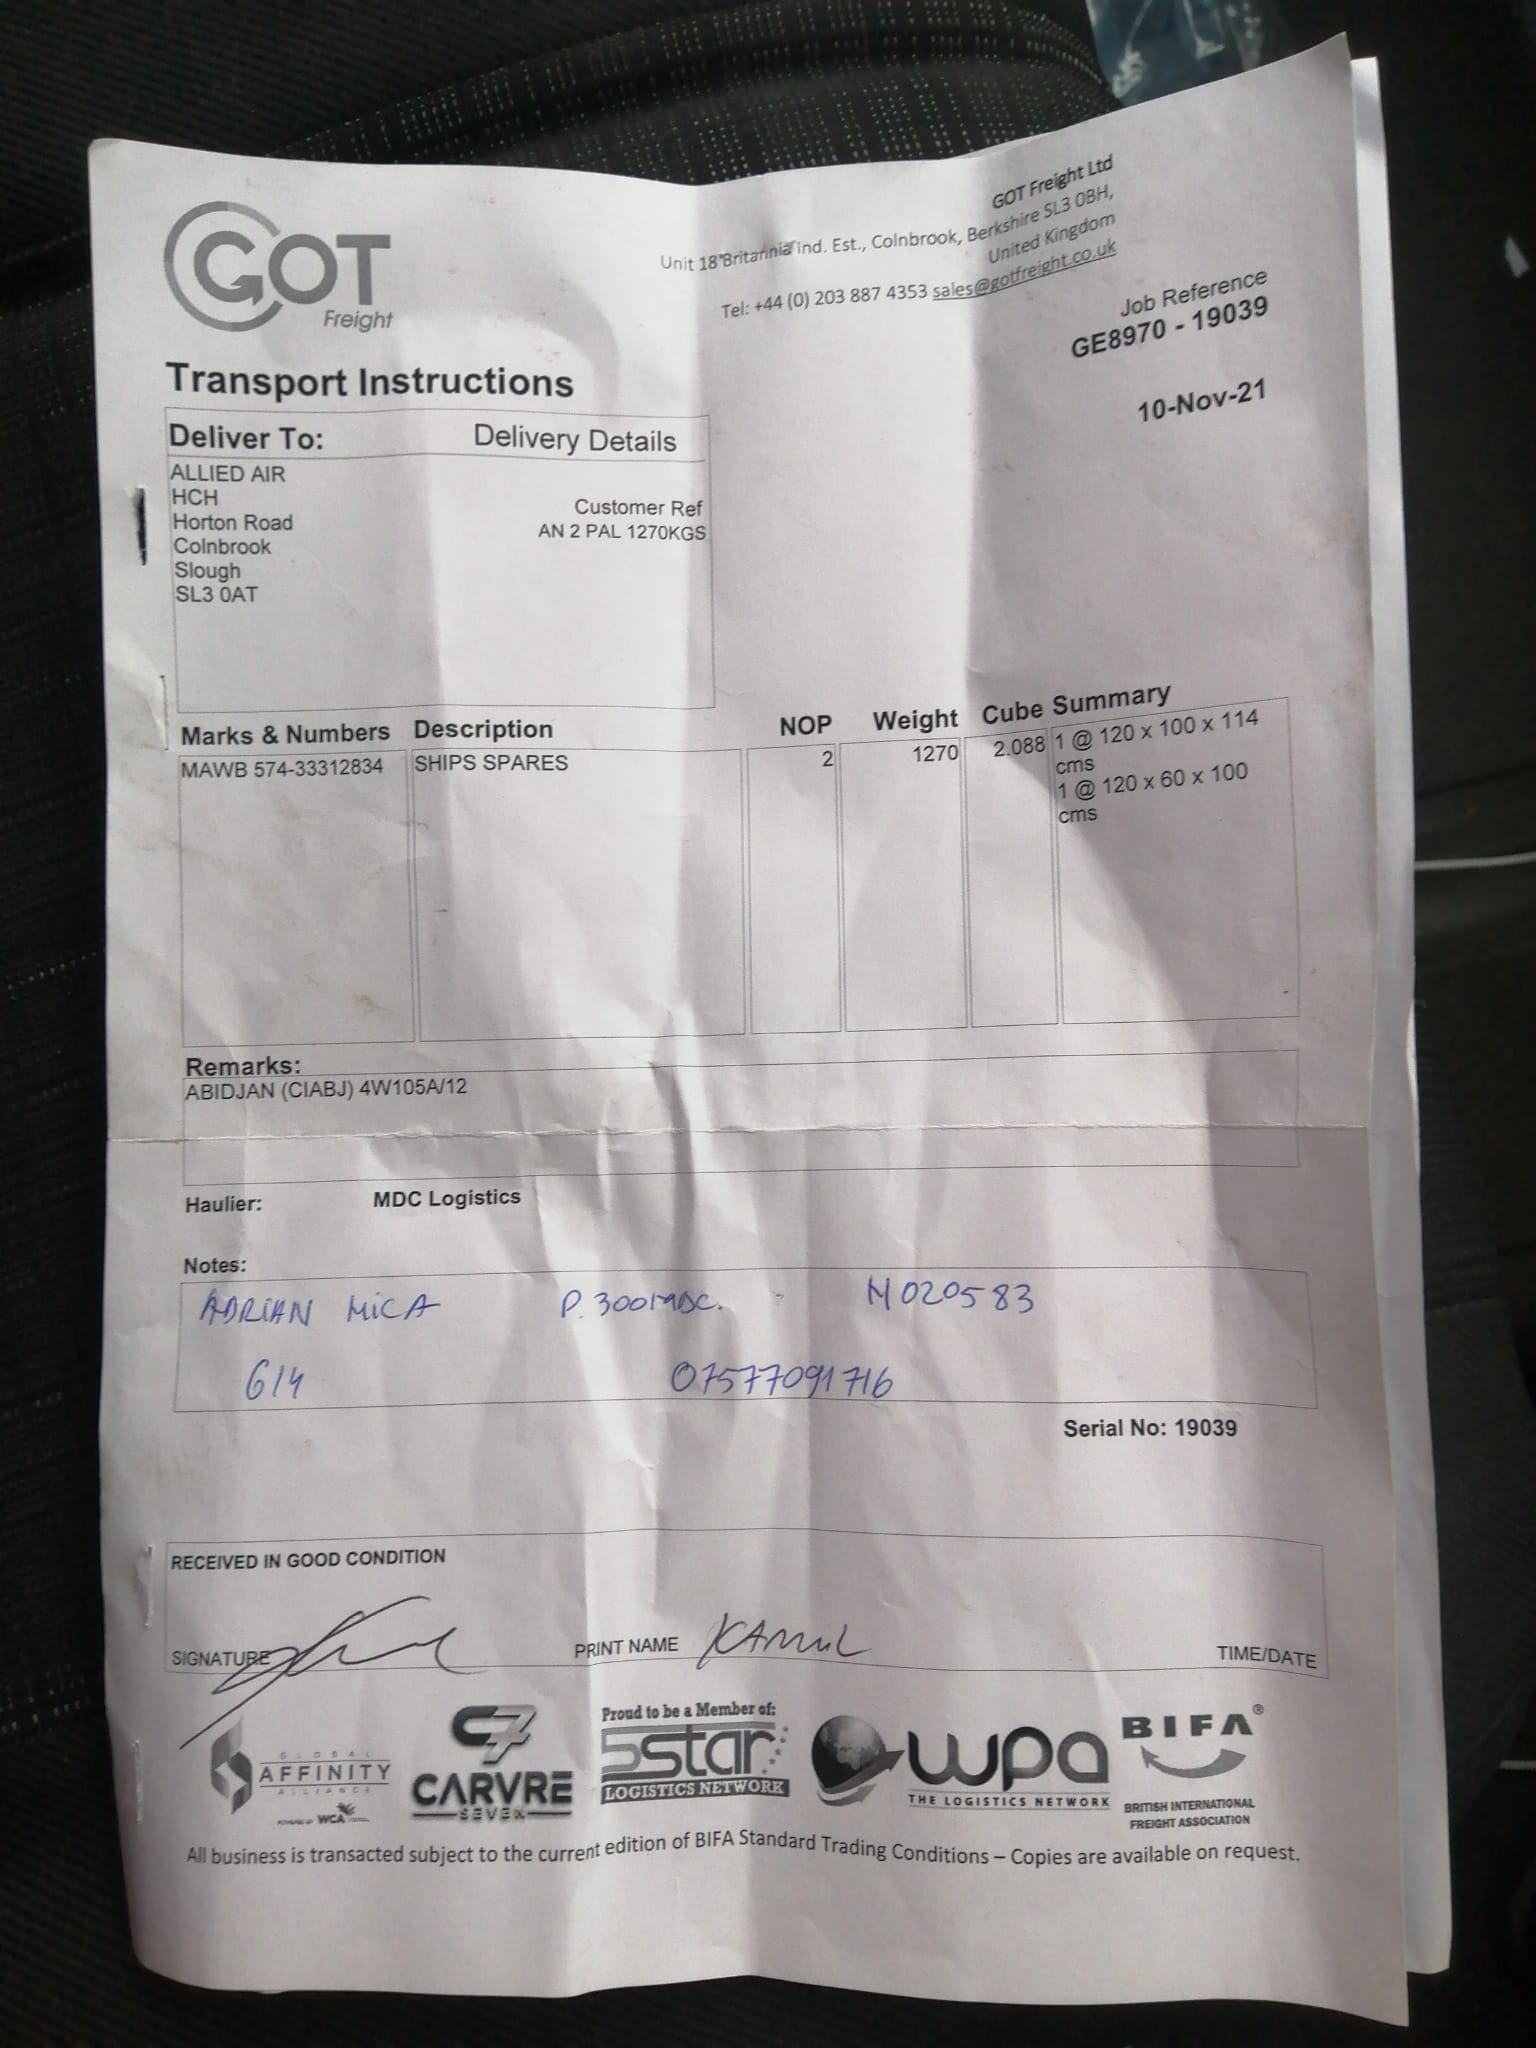 GOT
Freight
GOT Freight Ltd
Unit 18 Britannia Ind. Est., Colnbrook, Berkshire SL3 0BH,
United Kingdom
Tel: +44 (0) 203 887 4353 sales@gotfreight.co.uk
Job Reference
GE8970 - 19039
10-Nov-21
Transport Instructions
Deliver To: Delivery Details
ALLIED AIR
HCH
Horton Road
Colnbrook
Slough
SL3 0AT
Customer Ref
AN 2 PAL 1270KGS
Marks & Numbers Description NOP Weight Cube Summary
MAWB 574-33312834 SHIPS SPARES 2 1270 2.088 1 @ 120 x 100 x 114
cms
1 @ 120 x 60 x 100
cms
Remarks:
ABIDJAN (CIABJ) 4W105A/12
Haulier: MDC Logistics
Notes:
ADRIAN MICA M020583
G14 07577091716
Serial No: 19039
RECEIVED IN GOOD CONDITION
SIGNATURE PRINT NAME KAMIL TIME/DATE
GLOBAL
AFFINITY
ALLIANCE
POWERED BY WCA
C7
CARVRE
SEVEN
Proud to be a Member of:
5star
LOGISTICS NETWORK
wpa
THE LOGISTICS NETWORK
BIFA®
BRITISH INTERNATIONAL
FREIGHT ASSOCIATION
All business is transacted subject to the current edition of BIFA Standard Trading Conditions – Copies are available on request.